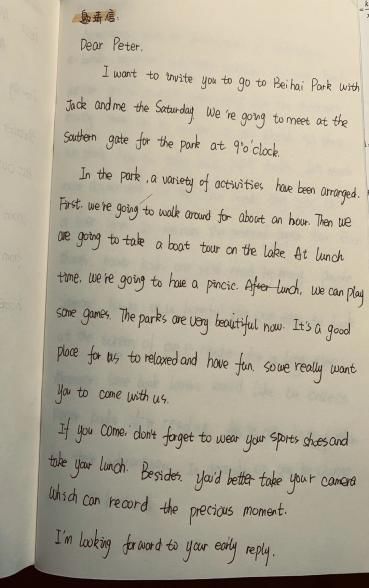 Dear Peter,
I want to invite you to go to Beihai Park with
Jack and me the Saturday. We're going to meet at the
Southern gate for the park at 9'o'clock.
In the park, a variety of activities have been arranged.
First, we're going to walk around for about an hour. Then we
are going to take a boat tour on the lake. At lunch
time, we're going to have a pincic. After lunch, we can play
some games. The parks are very beautiful now. It's a good
place for us to relaxed and have fun, so we really want
you to come with us.
If you come, don't forget to wear your sports shoes and
take your lunch. Besides, you'd better take your camera
which can record the precious moment.
I'm looking forward to your early reply.